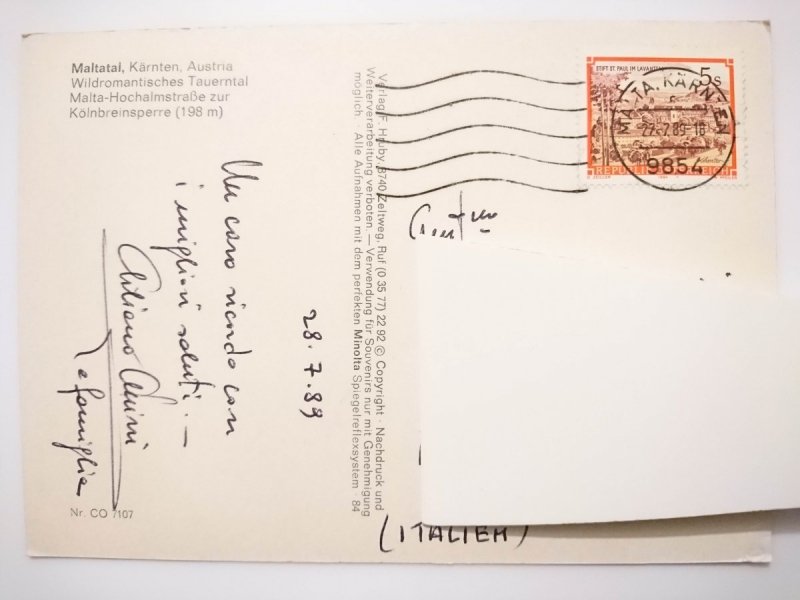 Maltatal, Kärnten, Austria
Wildromantisches Tauerntal
Malta-Hochalmstraße zur
Kölnbreinsperre (198 m)
Un caro ricordo con
i migliori saluti. —
e famiglia
28.7.89
Nr. CO 7107
Verlag F. Hruby, 8740 Zeltweg, Ruf (0 35 77) 22 92 © Copyright · Nachdruck und
Weiterverarbeitung verboten. — Verwendung für Souvenirs nur mit Genehmigung
möglich · Alle Aufnahmen mit dem perfekten Minolta Spiegelreflexsystem · 84
STIFT ST. PAUL IM LAVANTTAL
5s
REPUBLIK ÖSTERREICH
MALTA, KÄRNTEN
9854
(ITALIEN)